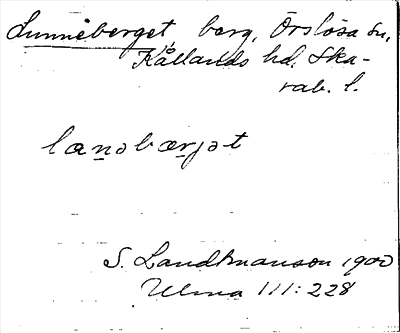 Lunneberget, berg, Örslösa sn,
Kållands hd, Ska-
rab. l.
lænəbærjət
S. Landtmanson 1900
Ulma 111:228